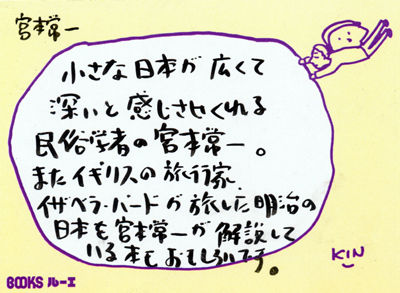 宮本常一
小さな日本が広くて
深いと感じさせてくれる
民俗学者の宮本常一。
またイギリスの旅行家、
イザベラ・バードが旅した明治の
日本を宮本常一が解説して
いる本もおもしろいです。
KIN
BOOKS ルーエ